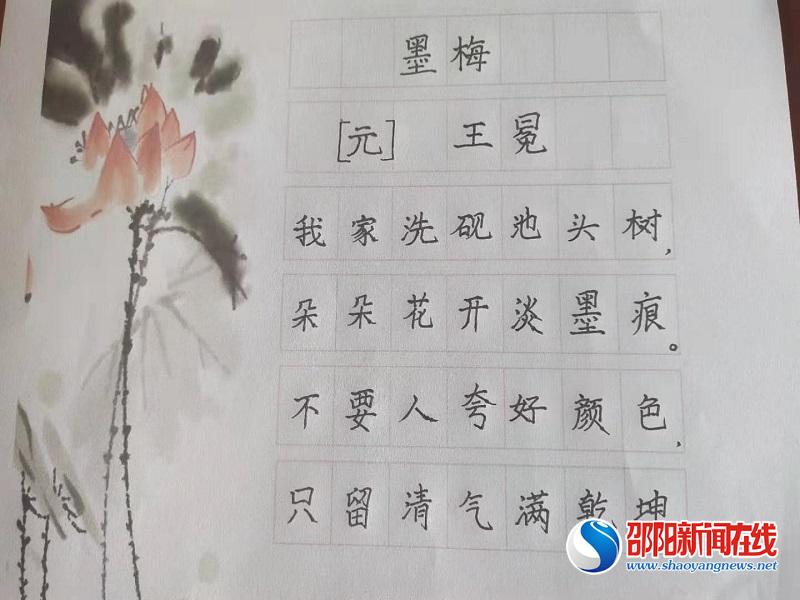 墨梅
[元] 王冕
我家洗砚池头树,
朵朵花开淡墨痕。
不要人夸好颜色,
只留清气满乾坤
邵阳新闻在线
www.shaoyangnews.net